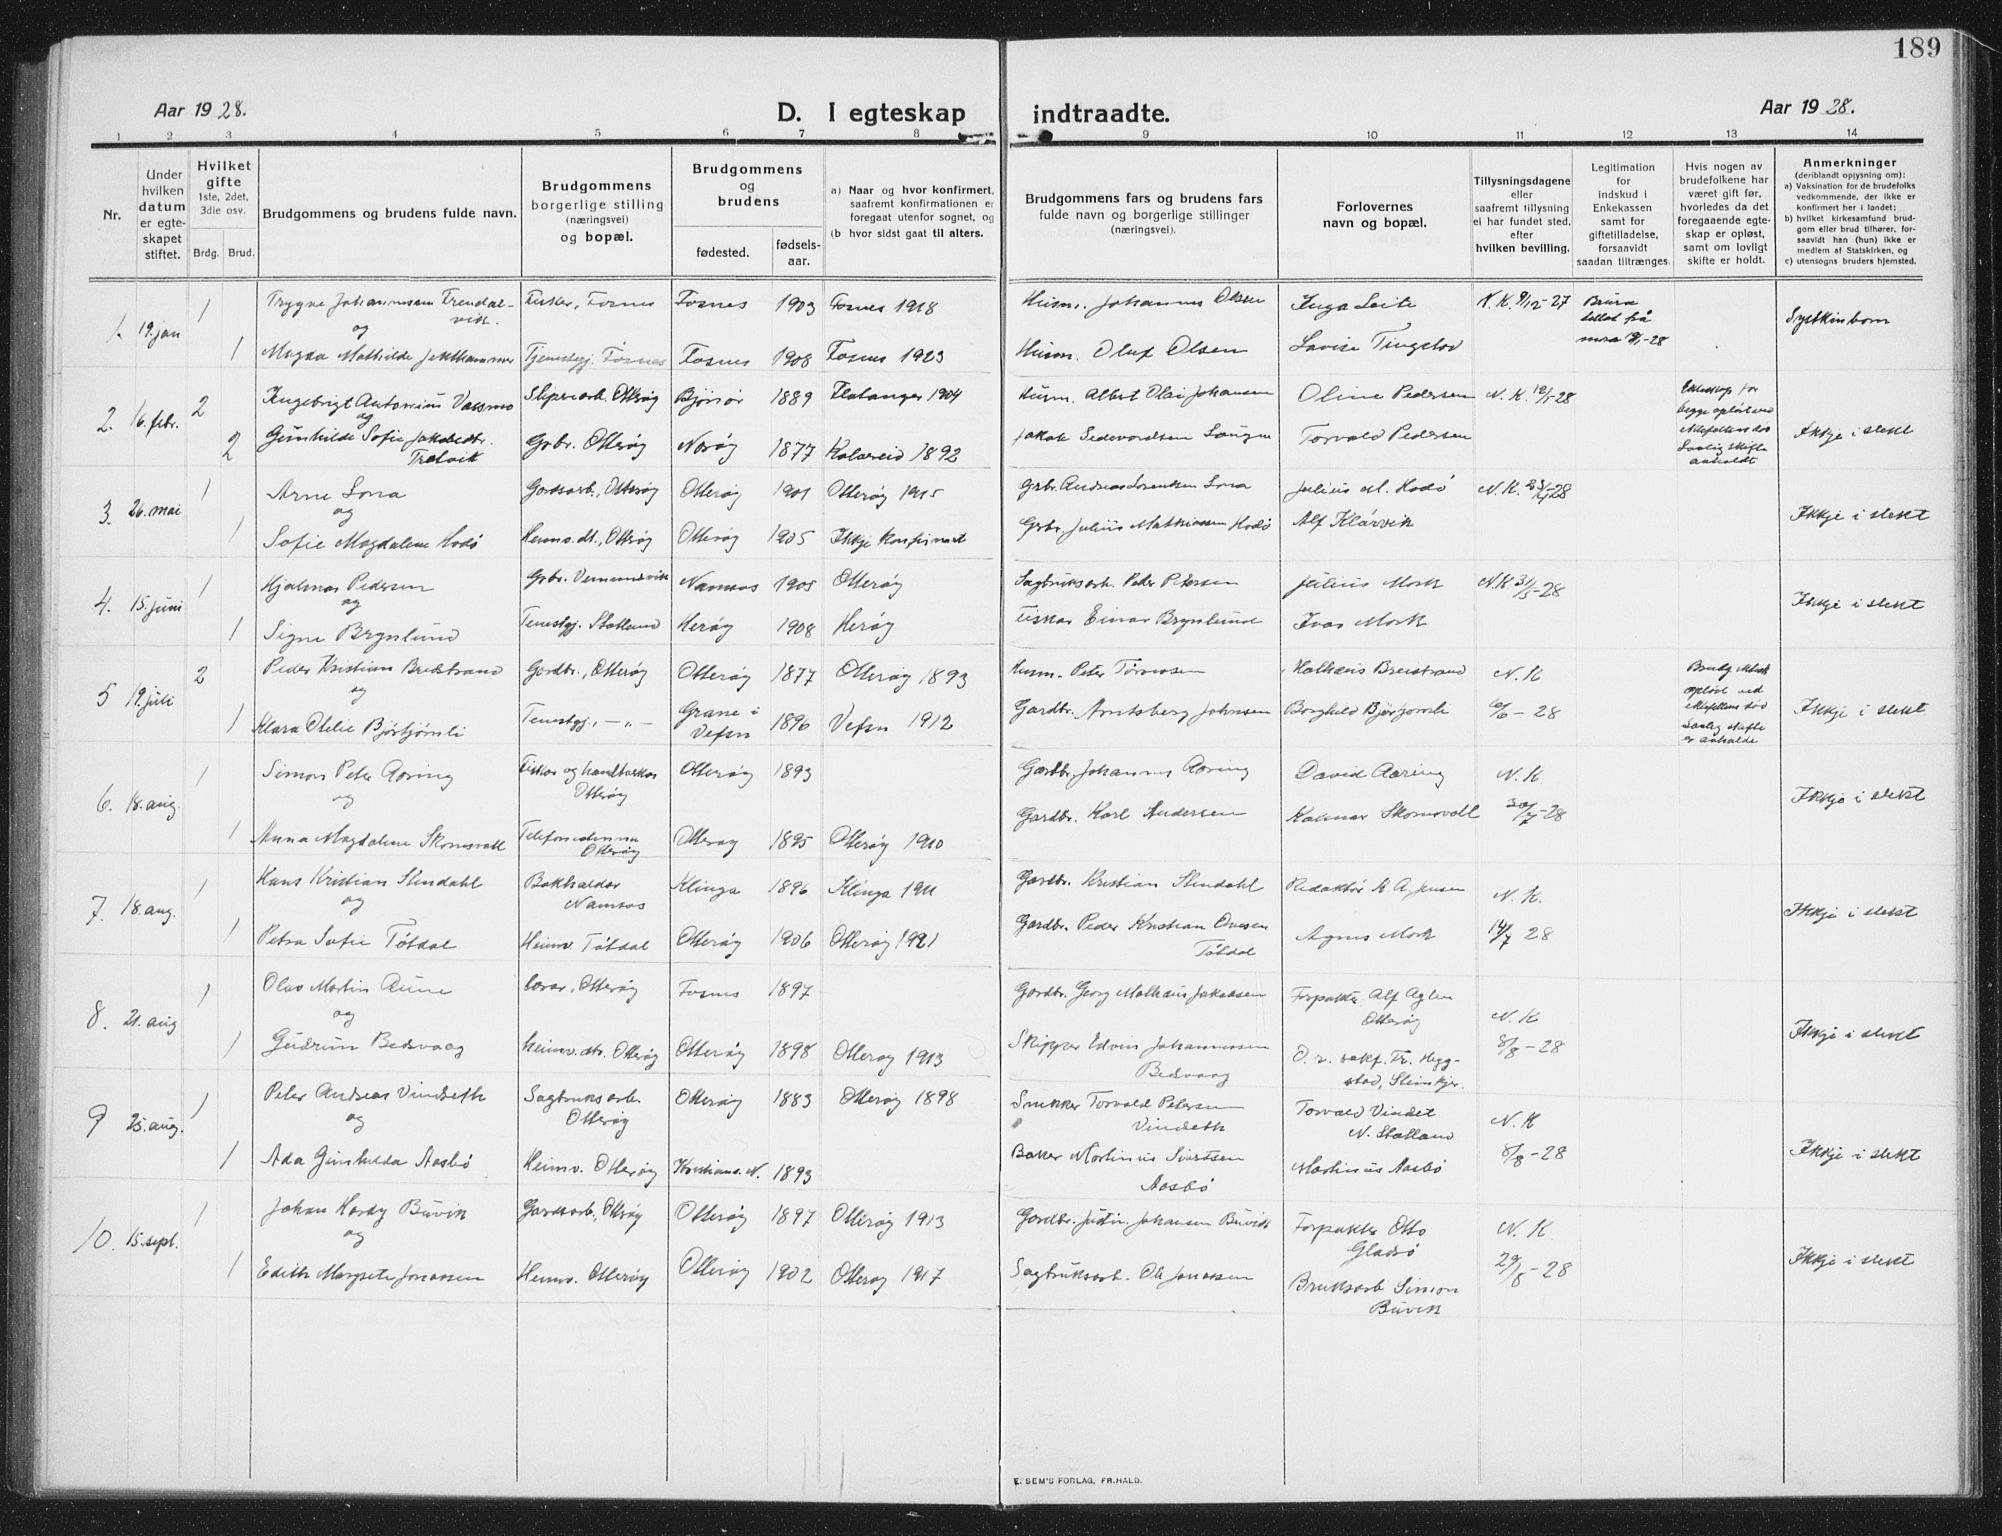 189
Aar 1928.
D. I egteskap indtraadte.
Aar 1928.
1 2 3 4 5 6 7 8 9 10 11 12 13 14
Nr.
Under hvilken datum er egteskapet stiftet.
Hvilket gifte 1ste, 2det, 3die osv.
Brdg. Brud.
Brudgommens og brudens fulde navn.
Brudgommens borgerlige stilling (næringsvei) og bopæl.
Brudgommens og brudens
fødested.
fødselsaar.
a) Naar og hvor konfirmert, saafremt konfirmationen er foregaat utenfor sognet, og
(b hvor sidst gaat til alters.
Brudgommens fars og brudens fars fulde navn og borgerlige stillinger (næringsvei).
Forlovernes navn og bopæl.
Tillysningsdagene eller saafremt tillysning ei har fundet sted, efter hvilken bevilling.
Legitimation for indskud i Enkekassen samt for giftetilladelse, forsaavidt saadan tiltrænges.
Hvis nogen av brudefolkene har været gift før, hvorledes da det foregaaende egteskap er opløst, samt om lovligt skifte er holdt.
Anmerkninger (deriblandt opjysning om):
a) Vaksination for de brudefolks vedkommende, der ikke er konfirmert her i landet;
b) hvilket kirkesamfund brudgom eller brud tilhører, forsaavidt han (hun) ikke er medlem af Statskirken, og
c) utensogns bruders hjemsted.
1. 19. jan 1 Trygve Johannessen Frendalvik. Fisker, Fosnes Fosnes 1903 Fosnes 1918 Husm. Johannes Olsen Inga Seite N. K. 9/12-27 Syskinborn
og
1 Magda Mathilde Fosnes Fosnes 1908 Fosnes 1923 Husm. Oluf Olsen
2. 16. febr. 2 Ingebrigt Antonius Vassmo Otterøy Bjørnør 1889 Flatanger 1904 Husm. Albert Olai Johansen Oline Pedersen N. K. 12/1-28 Ikkje i slekt
og
2 Gunhilde Sofie Grbr. Otterøy Nærøy 1877 Kolvereid 1892 Jakob Torvald Pedersen
3. 26. mai 1 Arne Lona Gardsarb., Otterøy Otterøy 1901 Otterøy 1915 Grbr. Andreas Lorentsen Lona Julius M. Hodø N. K. -28 Ikkje i slekt
og
1 Sofie Magdalene Hodø Heimv. dt., Otterøy Otterøy 1905 Ikkje konfirmert Grbr. Julius Mathiassen Hodø Alf Klårvik
4. 15. juni 1 Hjalmar Pedersen Grbr. Vemundvik Namsos 1905 Otterøy Sagbruksarb. Peder Petersen Julius Mork N. K 31/5-28 Ikkje i slekt
og
1 Signe Brynlund Tenestgj. Statland Herøy 1908 Herøy Fiskar Einar Brynlund Ivar Mork
5 19. juli 2 Peder Kristian Breistrand Gardbr., Otterøy Otterøy 1877 Otterøy 1893 Husm. Peter Halhaus Breistrand N. K Ikkje i slekt
og
1 Klara Otelie Bjørtjømli Tenestgj., -„- Grane i Vefsn 1896 Vefsn 1912 Gardbr. Arntsberg Johnsen Borghild Bjørtjømli -28
6. 18. aug. 1 Simon Peter Aaring Fiskar og handverkar Otterøy Otterøy 1893 Gardbr. Johannes Aaring David Aaring N. K Ikkje i slekt
og
1 Anna Magdalene Skomsvoll Otterøy Otterøy 1895 Otterøy 1910 Gardbr. Karl Andersen Kalmar Skomsvoll 30/7-28
7. 18. aug. 1 Hans Kristian Stendahl Bokhaldar Namsos Klinga 1896 Klinga 1911 Gardbr. Kristian Stendahl Redaktør K. A. Jensen N. K. Ikkje i slekt
og
1 Petra Sofie Tøtdal Heimv. Tøtdal Otterøy 1906 Otterøy 1921 Gardbr. Peder Kristian Ovesen Tøtdal Agnes Mork 14/7 28
8. 21. aug 1 Olav Martin Aune Lærar, Otterøy Fosnes 1897 Gardbr. Georg Mathæus Jakobsen Forpakter Alf Aglen Otterøy N. K Ikkje i slekt
og
1 Gudrun Bedsvaag Heimv. dt. Otterøy Otterøy 1898 Otterøy 1913 Skipper Edvin Johannessen Bedsvaag O. r. sakf. Fr. Heggstad, Steinkjer. 8/8-28
9 25. aug. 1 Peter Andreas Vindseth Sagbruksarb. Otterøy Otterøy 1883 Otterøy 1898 Snikker Torvald Petersen Vindseth Torvald Vindset N. Statland N. K Ikkje i slekt
og
1 Ada Gunhilda Aasbø Heimv. Otterøy Kristians. N. 1893 Baker Martinus Sivertsen Aasbø Martinus Aasbø 8/8-28
10. 15. sept. 1 Johan Hardy Buvik Gardsarb., Otterøy Otterøy 1897 Otterøy 1913 Gardbr. Justin Johansen Buvik Forpakter Otto Gladsø N. K. Ikkje i slekt
og
1 Edith Margrete Jonassen Heimv. Otterøy Otterøy 1902 Otterøy 1917 Sagbruksarb. Ole Jonassen Bruksarb Simon Buvik 29/8-28
E. SEM'S FORLAG, FR.HALD.